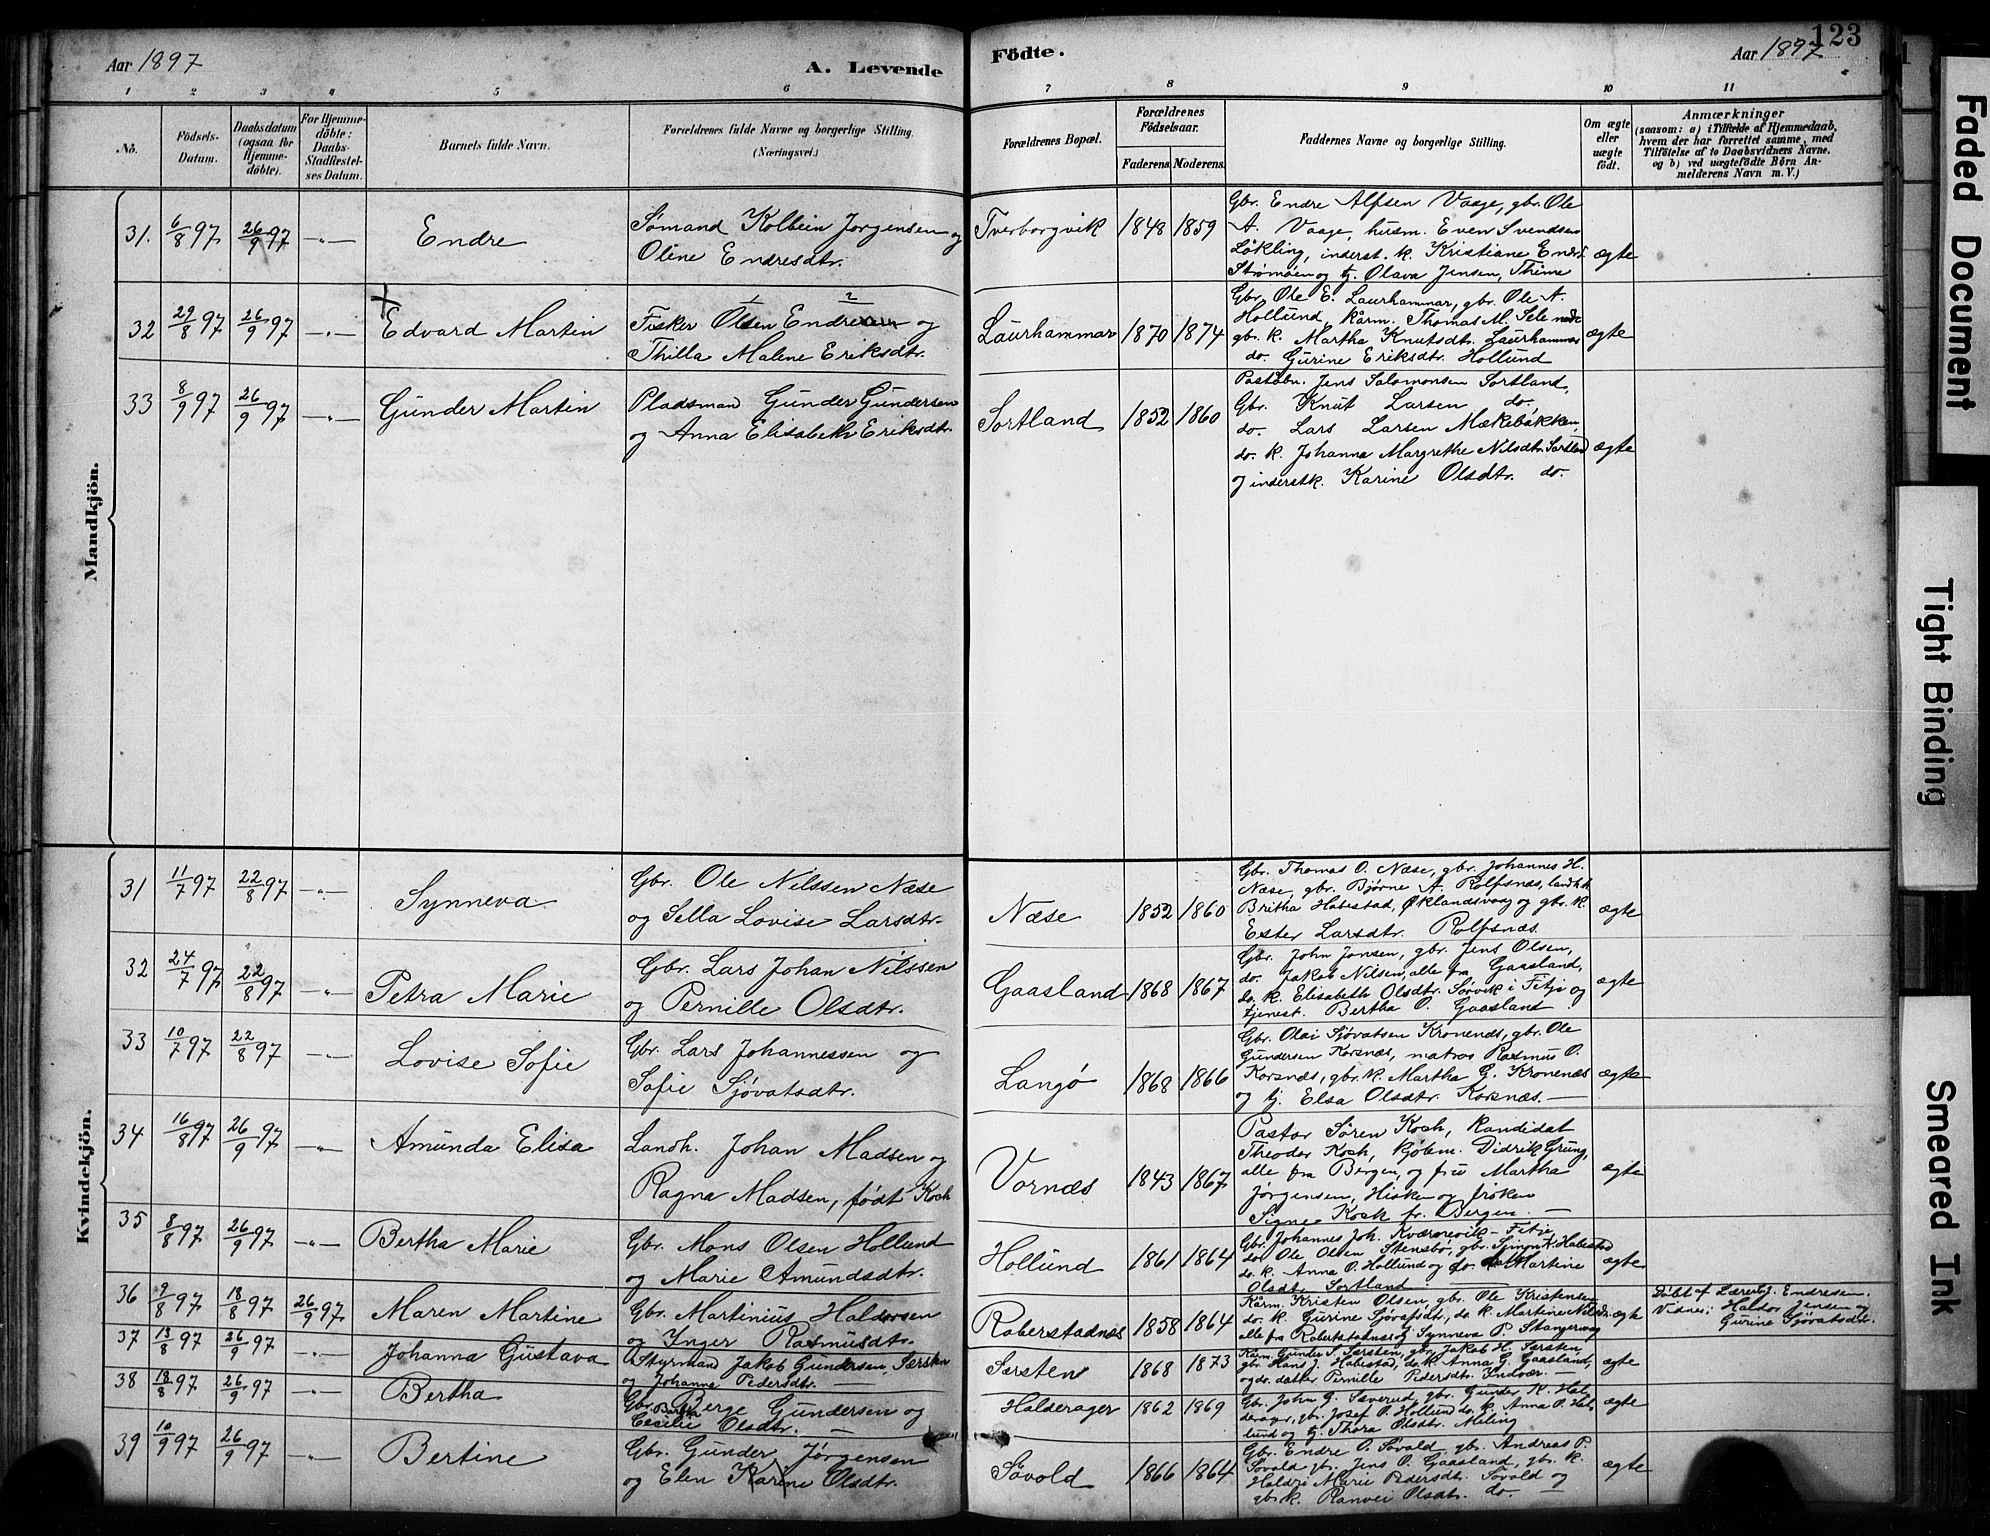 123
Aar 1897
A. Levende
Födte.
Aar 1897
1 2 3 4 5 6 7 8 9 10 11
No.
Födsels-Datum.
Daabsdatum (ogsaa for Hjemme-döbte).
For Hjemme-döbte: Daabs-Stadfæstel-ses Datum.
Barnets fulde Navn.
Forældrenes fulde Navne og borgerlige Stilling.
(Næringsvei.)
Forældrenes Bopæl.
Forældrenes Födselsaar.
Faderens. Moderens.
Faddernes Navne og borgerlige Stilling.
Om ægte eller uægte født.
Anmærkninger
(saasom: a) i Tilfælde af Hjemmedaab,
hvem der har forrettet samme, med
Tilföielse af to Daabsvidners Navne,
og b) ved uægtefödte Börn An-
melderens Navn m. V.)
Mandkjön.
31. 6/8 97 26/9 97 -"- Endre
Sømand Kolbein Jørgensen og
Oline Endresdtr.
Tverborgvik 1848 1859
Gbr. Endre Alfsen Vaage, gbr. Ole
A. Vaage, husm. Even Svendsen
Løkling, inderst. k. Kristiane Endr.
Strømøen og tj. Olava Jensen, Thime
ægte
32 29/8 97 26/9 97 -"- Edvard Martin
Fisker Olsen Endre og
Thilla Malene Eriksdtr.
Laurhammar 1870 1874
Gbr. Ole E. Laurhammar, gbr. Ole A.
Hollund, kårm. Thomas M. Sele
gbr. k. Martha Knutsdtr. Laurhammar
do. Gurine Eriksdtr. Hollund
ægte
33 8/9 97 26/9 97 -"- Gunder Martin
Pladsmand Gunder Gundersen
og Anna Elisabeth Eriksdtr.
Sortland 1852 1860
Postaabn. Jens Salomonsen Sortland,
Gbr. Knut Larsen do.,
do. Lars Larsen Mækebakken,
do. k. Johanna Margrethe Nilsdtr. Sortland
og inderstk. Karine Olsdtr. do.
ægte
Kvindekjön.
31 11/7 97 22/8 97 -"- Synneva
Gbr. Ole Nilssen Næse
og Sella Lovise Larsdtr.
Næse 1852 1860
Gbr. Thomas O. Næse, gbr. Johannes H.
Næse, gbr. Bjørne A. Rolfsnæs, landh.k.
Britha Habestad, Øklandsvaag og gbr. k.
Ester Larsdtr. Rolfsnæs.
ægte
32 24/7 97 22/8 97 -"- Petra Marie
Gbr. Lars Johan Nilssen
og Pernille Olsdtr.
Gaasland 1868 1867
Gbr. John Jansen, gbr. Jens Olsen,
do. Jakob Nilsen, alle fra Gaasland,
do. k. Elisabeth Olsdtr. Sørvik i Fitje og
tjenest. Bertha O. Gaasland
ægte
33 10/7 97 22/8 97 -"- Lovise Sofie
Gbr. Lars Johannessen og
Sofie Sjøvatsdtr.
Langø 1868 1866
Gbr. Olai Sjøvatsen Kronenæs, gbr. Ole
Gundersen Korsnæs, matros Rasmus O.
Korsnæs, gbr. k. Martha G. Kronenæs
og tj. Elsa Olsdtr. Korsnæs. —
ægte
34 16/8 97 26/9 97 -"- Amunda Elisa
Landh. Johan Madsen og
Ragna Madsen, født Koch
Vornæs 1843 1867
Pastor Søren Koch, Kandidat
Theodor Koch, kjøbm. Didrik Grung,
alle fra Bergen, og fru Martha
Jørgensen, Hisken og frøken
Signe Koch fr. Bergen. —
ægte
35 8/8 97 26/9 97 -"- Bertha Marie
Gbr. Mons Olsen Hollund
og Marie Amundsdtr.
Hollund 1861 1864
Gbr. Johannes Joh. Kværnevik - Fitje,
do. Ole Olsen Stensbø, gbr. Simon K. Habestad
do. k. Anna O. Hollund og do. Martine
Olsdt. Sortland —
ægte
36 9/8 97 18/8 97 26/9 97. Maren Martine
Gbr. Martinius Haldorsen
og Inger Rasmusdtr.
Roberstadnæs 1858 1864
Kårm. Kristen Olsen, gbr. Ole Kristensen,
do. k. Gurine Sjøvatsdtr, do. k. Martine Nilsdtr.
alle fra Robertstadnæs og Synneva P. Stangervaag
ægte
Døbt af Lærer J. Endresen.
Vidner: Haldor Jensen og
Gurine Sjøvatsdtr.
37 13/8 97 26/9 97 -"- Johanna Gustava
Styrmand Jakob Gundersen Særsten
og Johanna Pedersdtr.
Særsten 1868 1873
Kårm. Gunder S. Særsten, gbr. Jakob H. Særsten,
gbr. Hans J. Habestad, do. k. Anna G. Gaasland,
og do. datter Pernille Pedersdtr. Indvær. —
ægte
38 18/8 97 26/9 97 -"- Bertha
Gbr. Børge Gundersen og
Bertha Cecilie Olsdtr. —
Halderager 1862 1869
Gbr. John G. Særerud, gbr. Gunder K. Hal-
derager, gbr. Josef O. Hollund do. k. Anna O. Hol-
lund og tj. Thora Olsdtr. Meling
ægte
39 10/9 97 26/9 97 -"- Bertine
Gbr. Gunder Jørgensen
og Elen Karine Olsdtr.
Søvold 1866 1864
Gbr. Endre O. Søvold, gbr. Andreas P.
Søvold gbr. Jens O. Gaasland, gbr. k.
Haldri Marie Pedersdtr. Søvold og
gbr. k. Ranvei Olsdtr. do. —
ægte
Faded Document
Tight Binding
Smeared Ink